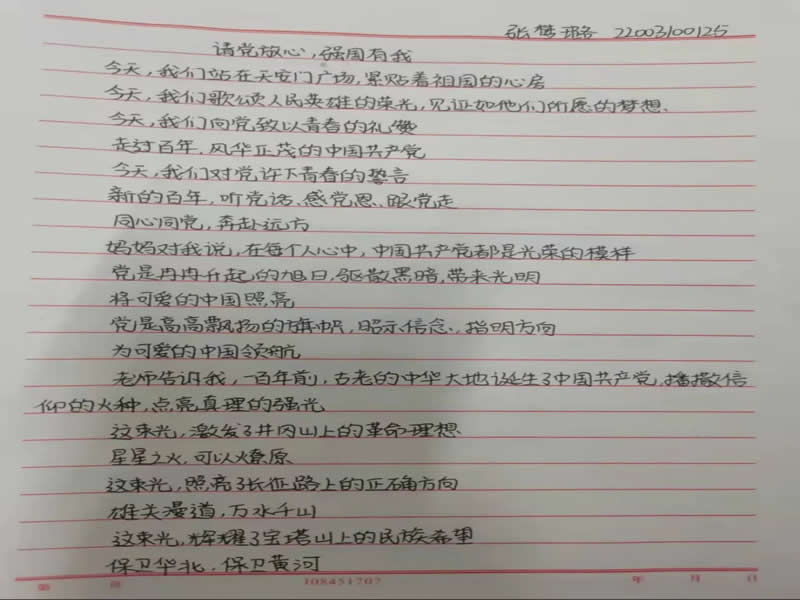 张梦璐 22003100125
请党放心，强国有我
今天，我们站在天安门广场，紧贴着祖国的心房
今天，我们歌颂人民英雄的荣光，见证如他们所愿的梦想.
今天，我们向党致以青春的礼赞
走过百年，风华正茂的中国共产党
今天，我们对党许下青春的誓言
新的百年，听党话、感党恩、跟党走
同心向党，奔赴远方
妈妈对我说，在每个人心中，中国共产党都是光荣的模样
党是冉冉升起的旭日，驱散黑暗，带来光明
将可爱的中国照亮
党是高高飘扬的旗帜，昭示信念、指明方向
为可爱的中国领航
老师告诉我，一百年前，古老的中华大地诞生了中国共产党，播撒信
仰的火种，点亮真理的强光
这束光，激发了井冈山上的革命理想
星星之火，可以燎原
这束光，照亮了长征路上的正确方向
雄关漫道，万水千山
这束光，辉耀了宝塔山上的民族希望
保卫华北，保卫黄河
第 页 108451707 年 月 日